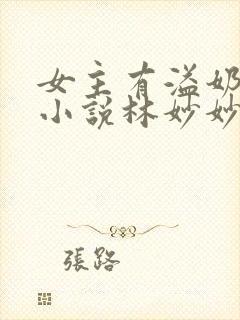 女主有溢奶
小說林妙妙
張路